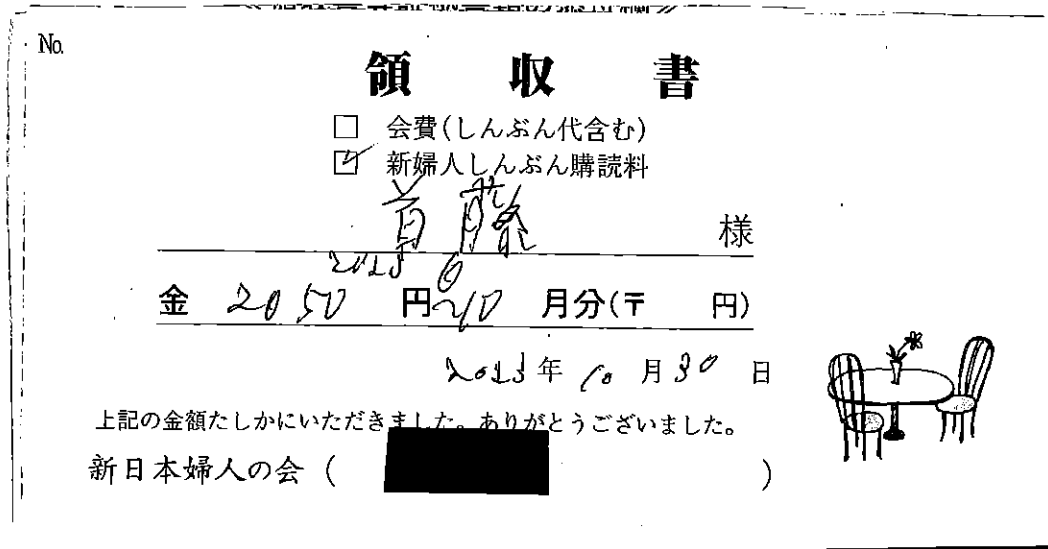 No.
領収書
□ 会費(しんぶん代含む)
☑ 新婦人しんぶん購読料
首藤 様
2023 6
金 2050 円 〜10 月分(〒 円)
2023年 10月30日
上記の金額たしかにいただきました。ありがとうございました。
新日本婦人の会 ( )